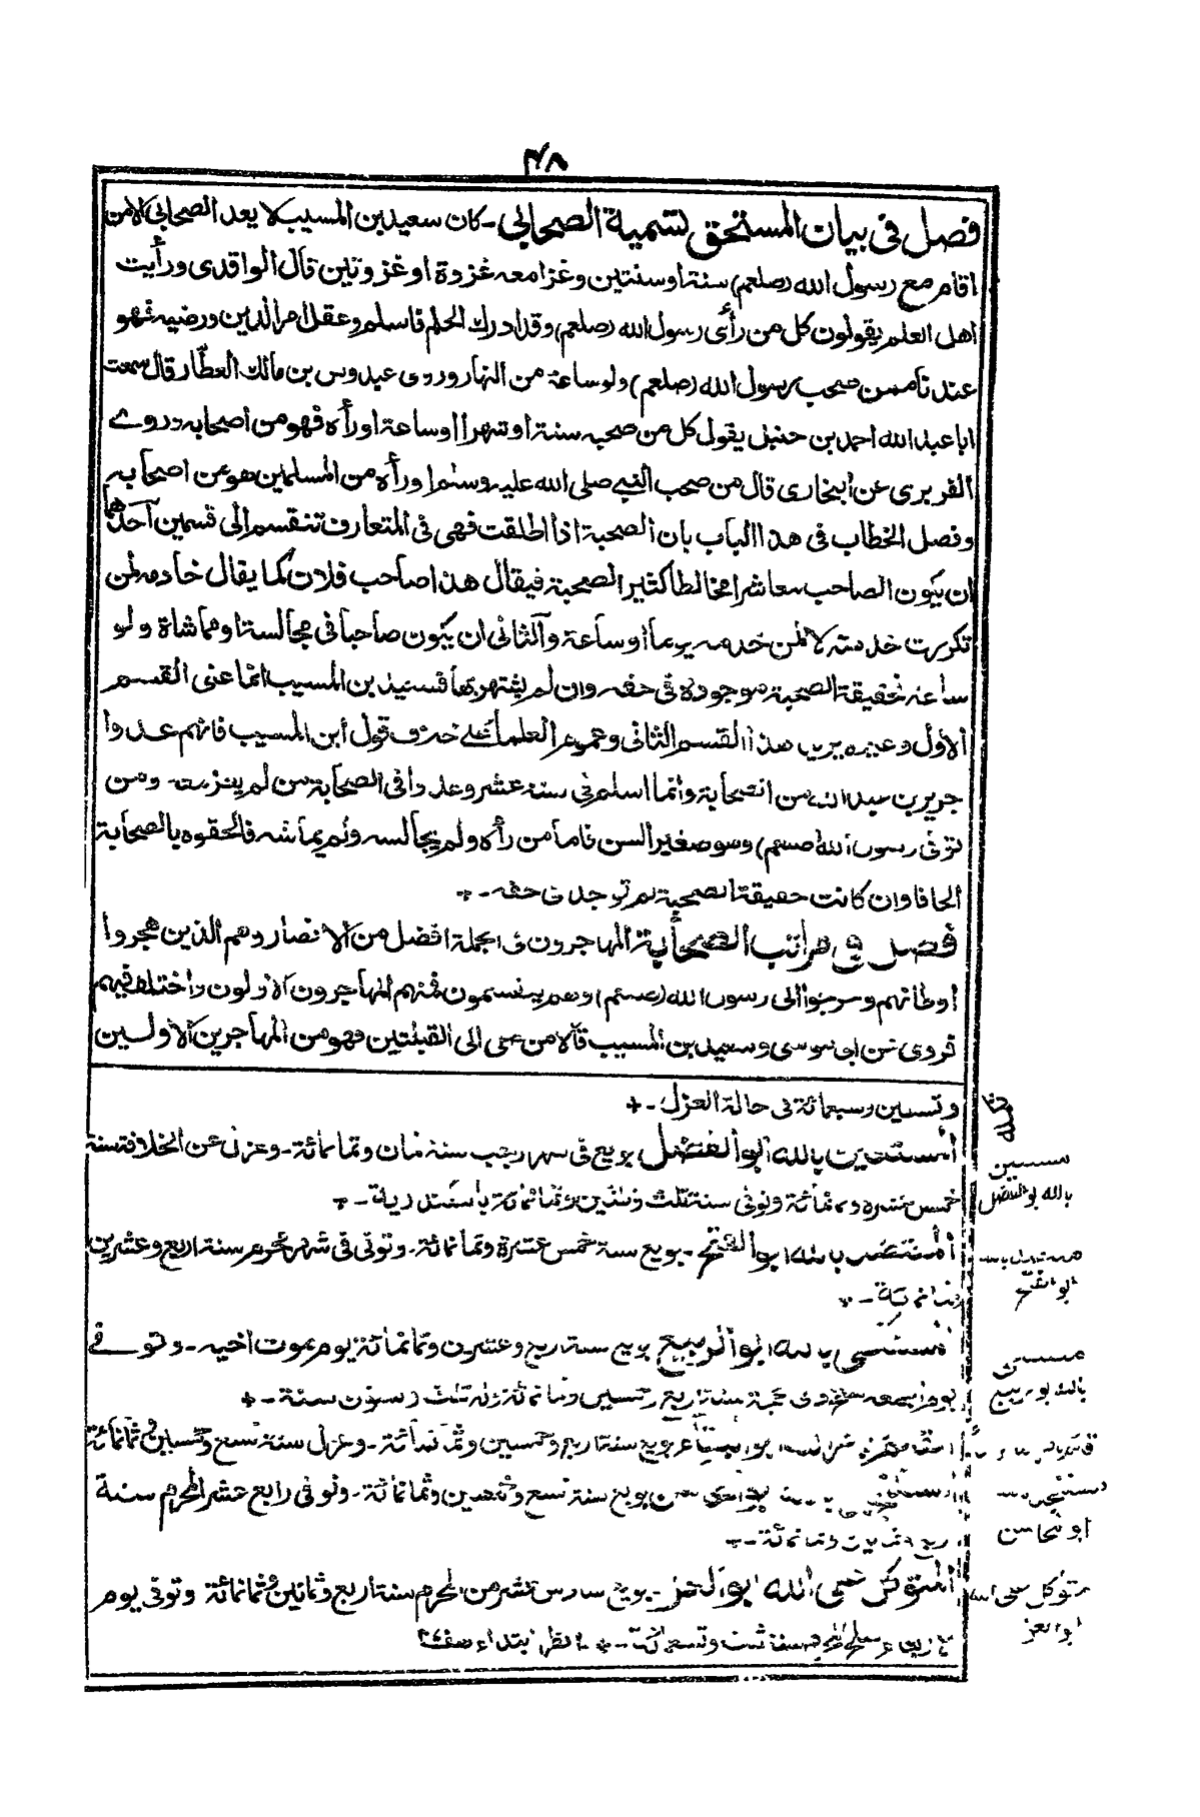 ٤٨
فصل فى بيان المستحق لتسمية الصحابى ـ كان سعيد بن المسيب لا يعد الصحابى الا من
اقام مع رسول الله (صلعم) سنة او سنتين وغزا معه غزوة او غزوتين قال الواقدى ورأيت
اهل العلم يقولون كل من رأى رسول الله (صلعم) وقد ادرك الحلم فاسلم وعقل امر الدين ورضيه فهو
عندنا ممن صحب رسول الله (صلعم) ولو ساعة من النهار وروى عبدوس بن مالك العطّار قال سمعت
ابا عبد الله احمد بن حنبل يقول كل من صحبه سنة او شهرا او ساعة او رأه فهو من اصحابه وروے
الفربرى عن البخارى قال من صحب النبے صلى الله عليه وسلم او رأه من المسلمين هو من اصحابه
وفصل الخطاب فى هذا الباب بان الصحبة اذا اطلقت فهى فى المتعارف تنقسم الى قسمين احدهما
ان يكون الصاحب معاشرا مخالطا كثير الصحبة فيقال هذا صاحب فلان كما يقال خادمه لمن
تكررت خدمته لا لمن خدمه يوما او ساعة والثانى ان يكون صاحبا فى مجالسة او مماشاة ولو
ساعة فحقيقة الصحبة موجودة فى حقه وان لم يشتهر بها فسعيد بن المسيب انما عنى القسم
الاول وغيره يريد هذا القسم الثانى وعموم العلماء على خلاف قول ابن المسيب فانهم عدوا
جرير بن عبد الله من الصحابة وانما اسلم فى سنة عشر وعدوا فى الصحابة من لم يغز معه ومن
توفى رسول الله (صلعم) وهو صغير السن فاما من رأه ولم يجالسه ولم يماشه فالحقوه بالصحابة
الحاقا وان كانت حقيقة الصحبة لم توجد فى حقه ـ +
فصل فى مراتب الصحابة المهاجرون فى الجملة افضل من الانصار وهم الذين هجروا
اوطانهم وخرجوا الى رسول الله (صلعم) وهم ينقسمون فمنهم المهاجرون الاولون واختلف فيهم
فروى عن ابى موسى وسعيد بن المسيب قالا من صلى الى القبلتين فهو من المهاجرين الاولين
وتسعين وسبعمائة فى حالة العزل ـ +
المستعين بالله ابو الفضل بويع فى شهر رجب سنة ثمان وثمانمائة ـ وعزل عن الخلافة سنة
مستعين
خمس عشرة وثمانمائة وتوفى سنة ثلث وثلثين وثمانمائة باسكندرية ـ +
بالله ابو الفضل
المعتضد بالله ابو الفتح ـ بويع سنة خمس عشرة وثمانمائة ـ وتوفى فى شهر محرم سنة اربع وعشرين
معتضد بالله
وثمانمائة ـ +
ابو الفتح
المستكفى بالله ابو الربيع بويع سنة اربع وعشرين وثمانمائة يوم موت اخيه ـ وتوفے
بالله ابو ربيع
يوم الجمعه سلخ ذى حجة سنة اربع وخمسين وثمانمائة وله ثلث وستون سنة ـ +
القائم بامر الله ابو البقاء بويع سنة اربع وخمسين وثمانمائة ـ وعزل سنة تسع وخمسين وثمانمائة
المستنجد بالله ابو المحاسن بويع سنة تسع وخمسين وثمانمائة ـ وتوفى رابع عشر المحرم سنة
اربع وثمانين وثمانمائة ـ +
ابو محاسن
المتوكل على الله ابو العز ـ بويع سادس عشر من المحرم سنة اربع وثمانين وثمانمائة وتوفى يوم
متوكل على الله
ابو العز